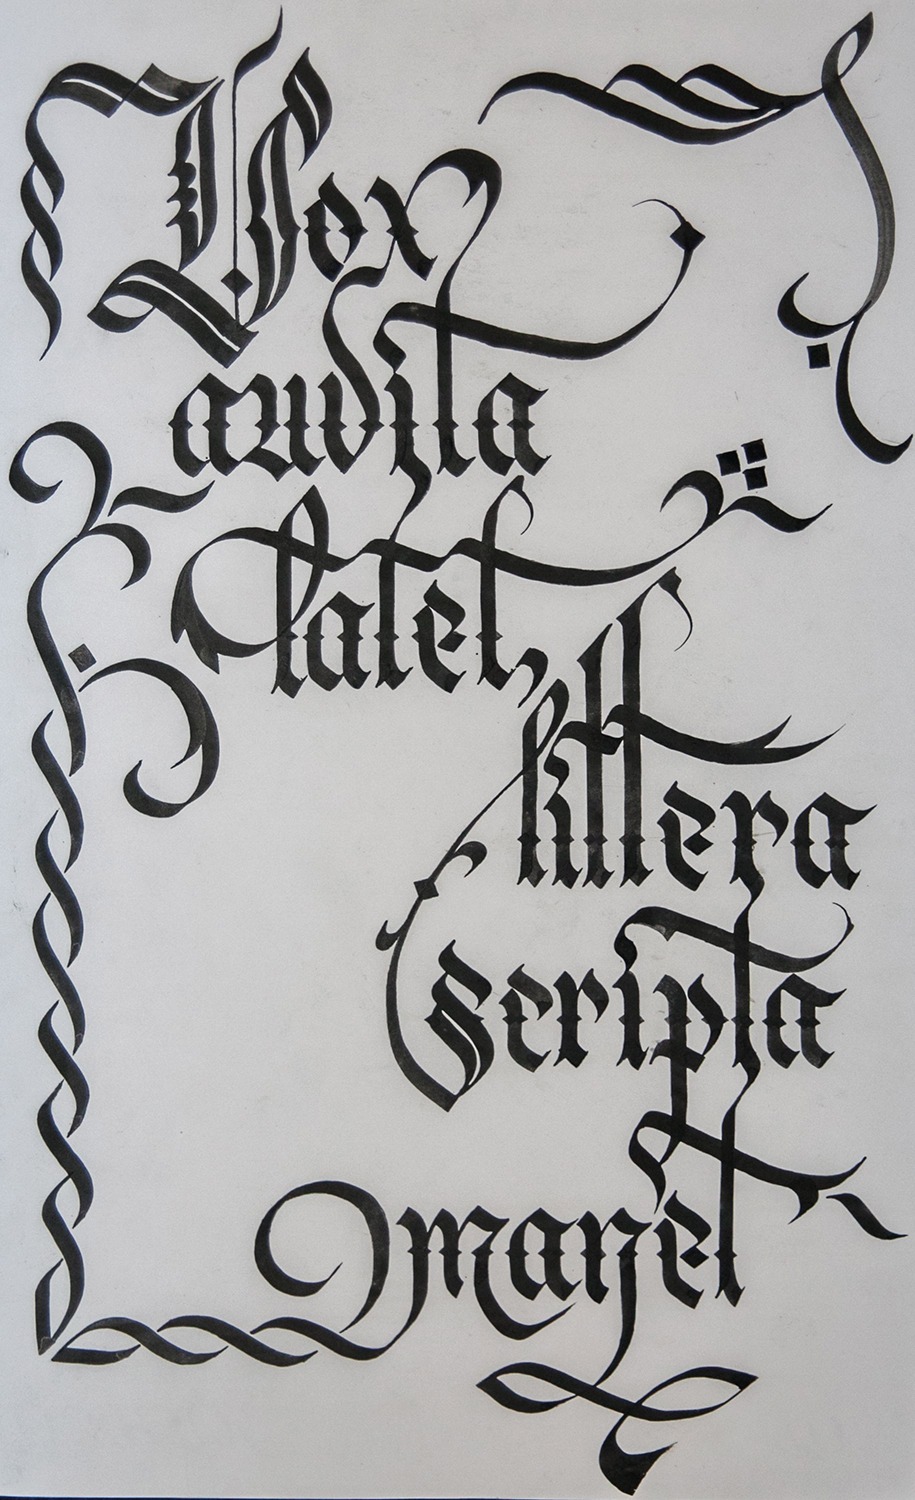 Vox
audita
latet,
littera
scripta
manet